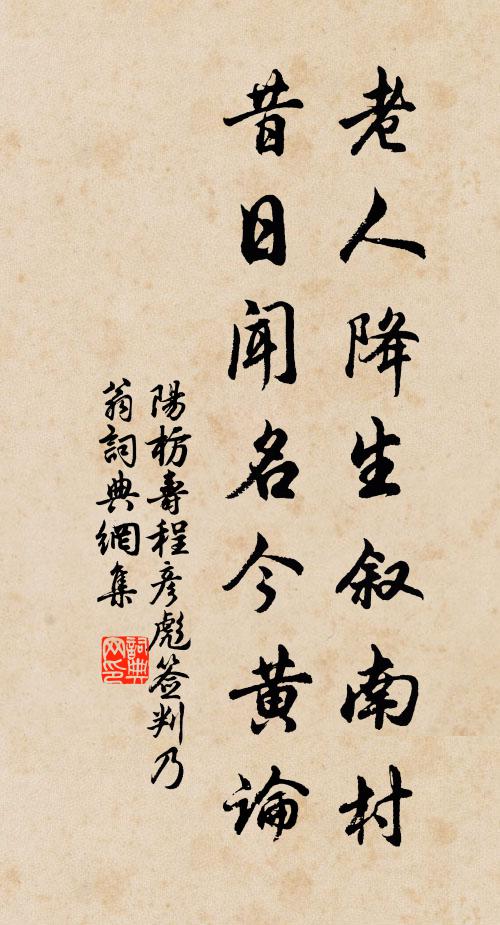 老人降生叙南村
昔日闻名今黄论
陽枋壽程彦彪签判乃
翁詞典網集
詞典网印